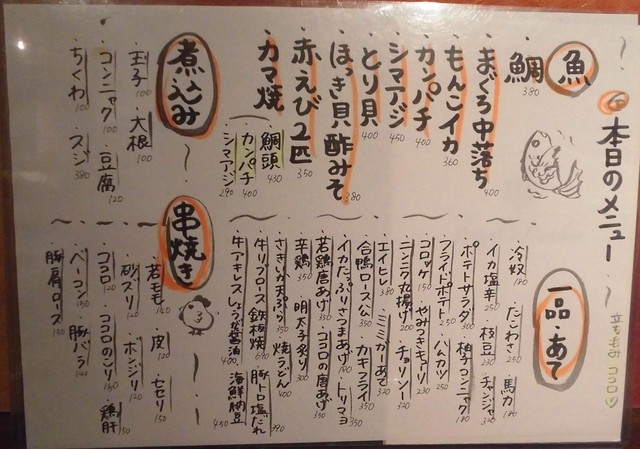 本日のメニュー
立ちのみ ココロ
魚
鯛 380
まぐろ中落ち 400
もんこイカ 360
カンパチ 400
シマアジ 450
とり貝 400
ほっき貝酢みそ 380
赤えび2匹 350
カマ焼
鯛頭 430
カンパチ 400
シマアジ 290
煮込み
玉子 100
大根 100
コンニャク 100
豆腐 120
ちくわ 100
スジ 380
一品・あて
冷奴 180
たこわさ 250
馬力 180
イカ塩辛 250
枝豆 230
チャンジャ 320
ポテトサラダ 300
柚子コンニャク 180
フライドポテト 250
ハムカツ 250
コロッケ 150
やみつきキューリ
ニンニク丸揚げ 200
チャーリソー 320
エイヒレ 380
ミミガーあて 320
合鴨ロース 350
カキフライ 350
イカたっぷりさつまあげ 180
トリマヨ 350
若鶏唐あげ 350
ココロの唐あげ 350
辛鶏 350
明太子炙り 300
さきいか天ぷら 350
焼うどん 400
牛リブロース鉄板焼 690
豚トロ塩だれ 390
牛アキレスしょうが醤油 400
海鮮納豆 450
串焼き
若モモ 140
皮 120
セセリ 150
砂ズリ 120
ボンジリ 120
ココロ 120
ココロのこり 160
鶏肝 150
ベーコン 150
豚バラ 140
豚肩ロース 150